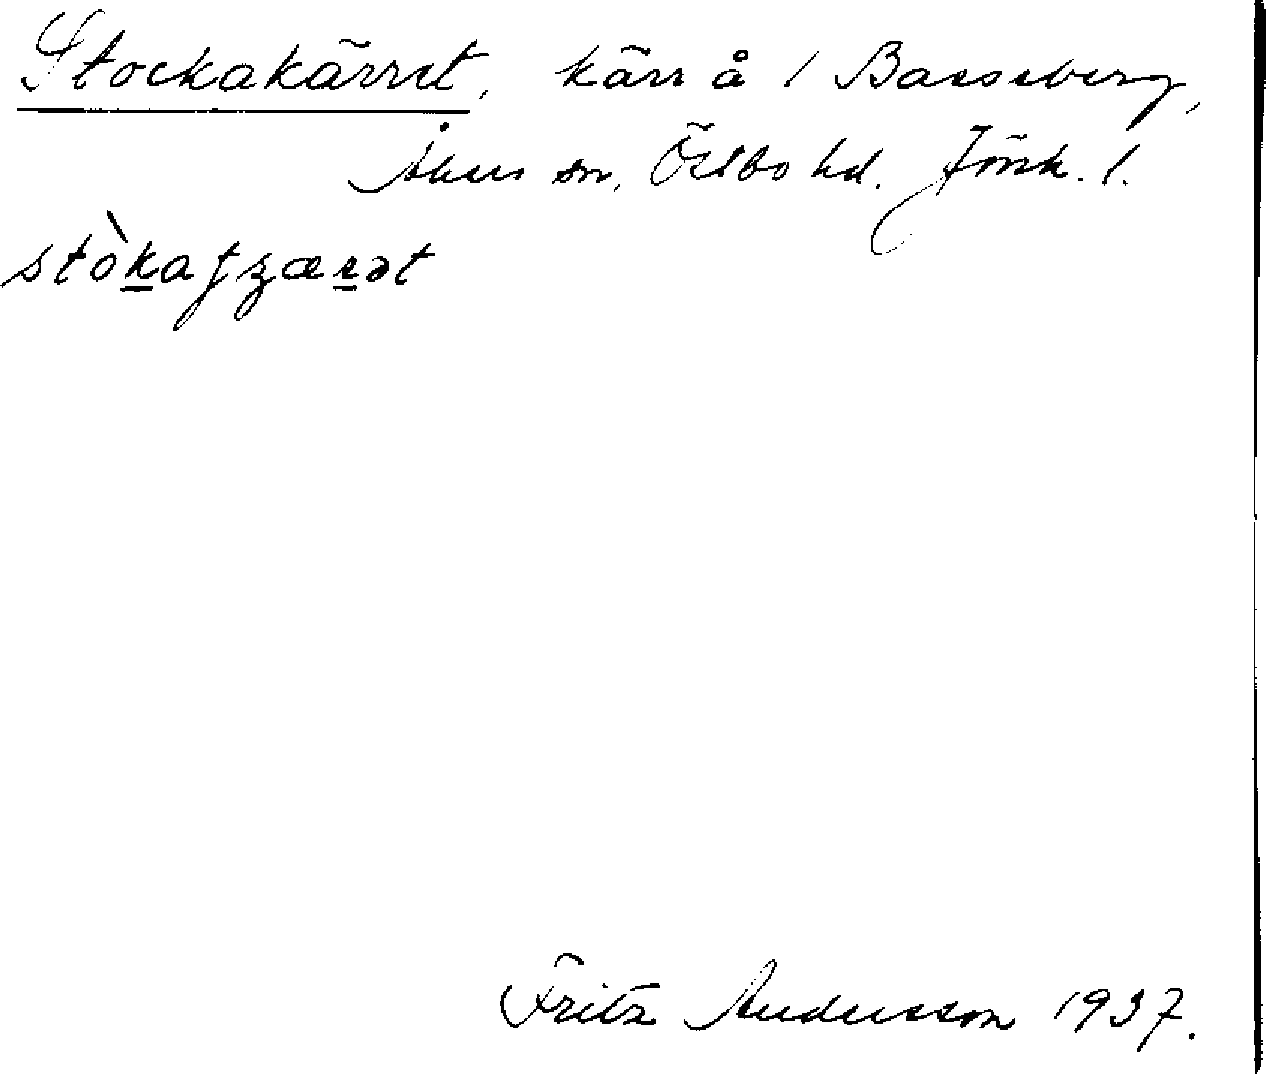 Stockakärret, kärr å 1 Bassberg,
Åkers sn, Östbo hd. Jönk. l.
stòkaʃʒærət
Fritz Andersson 1937.